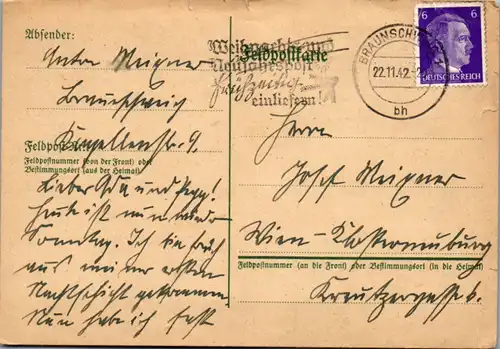 Absender:
Anton Meixner
Braunschweig
Kapellenstr. 9
Feldpost
Feldpostnummer (von der Front) oder
Bestimmungsort (aus der Heimat)
Lieber Papa und
Heute ist nun wieder
Sonntag. Ich bin früh
aus meiner ersten
Nachtschicht gekommen.
Nun habe ich fast
Feldpostkarte
Weihnachts- und
Neujahrspost
frühzeitig
einliefern!
BRAUNSCHWEIG
22.11.42
bh
6 6
DEUTSCHES REICH
Herrn
Josef Meixner
Wien-Klosterneuburg
Feldpostnummer (an die Front) oder Bestimmungsort (in die Heimat)
Kreutzergasse 6.